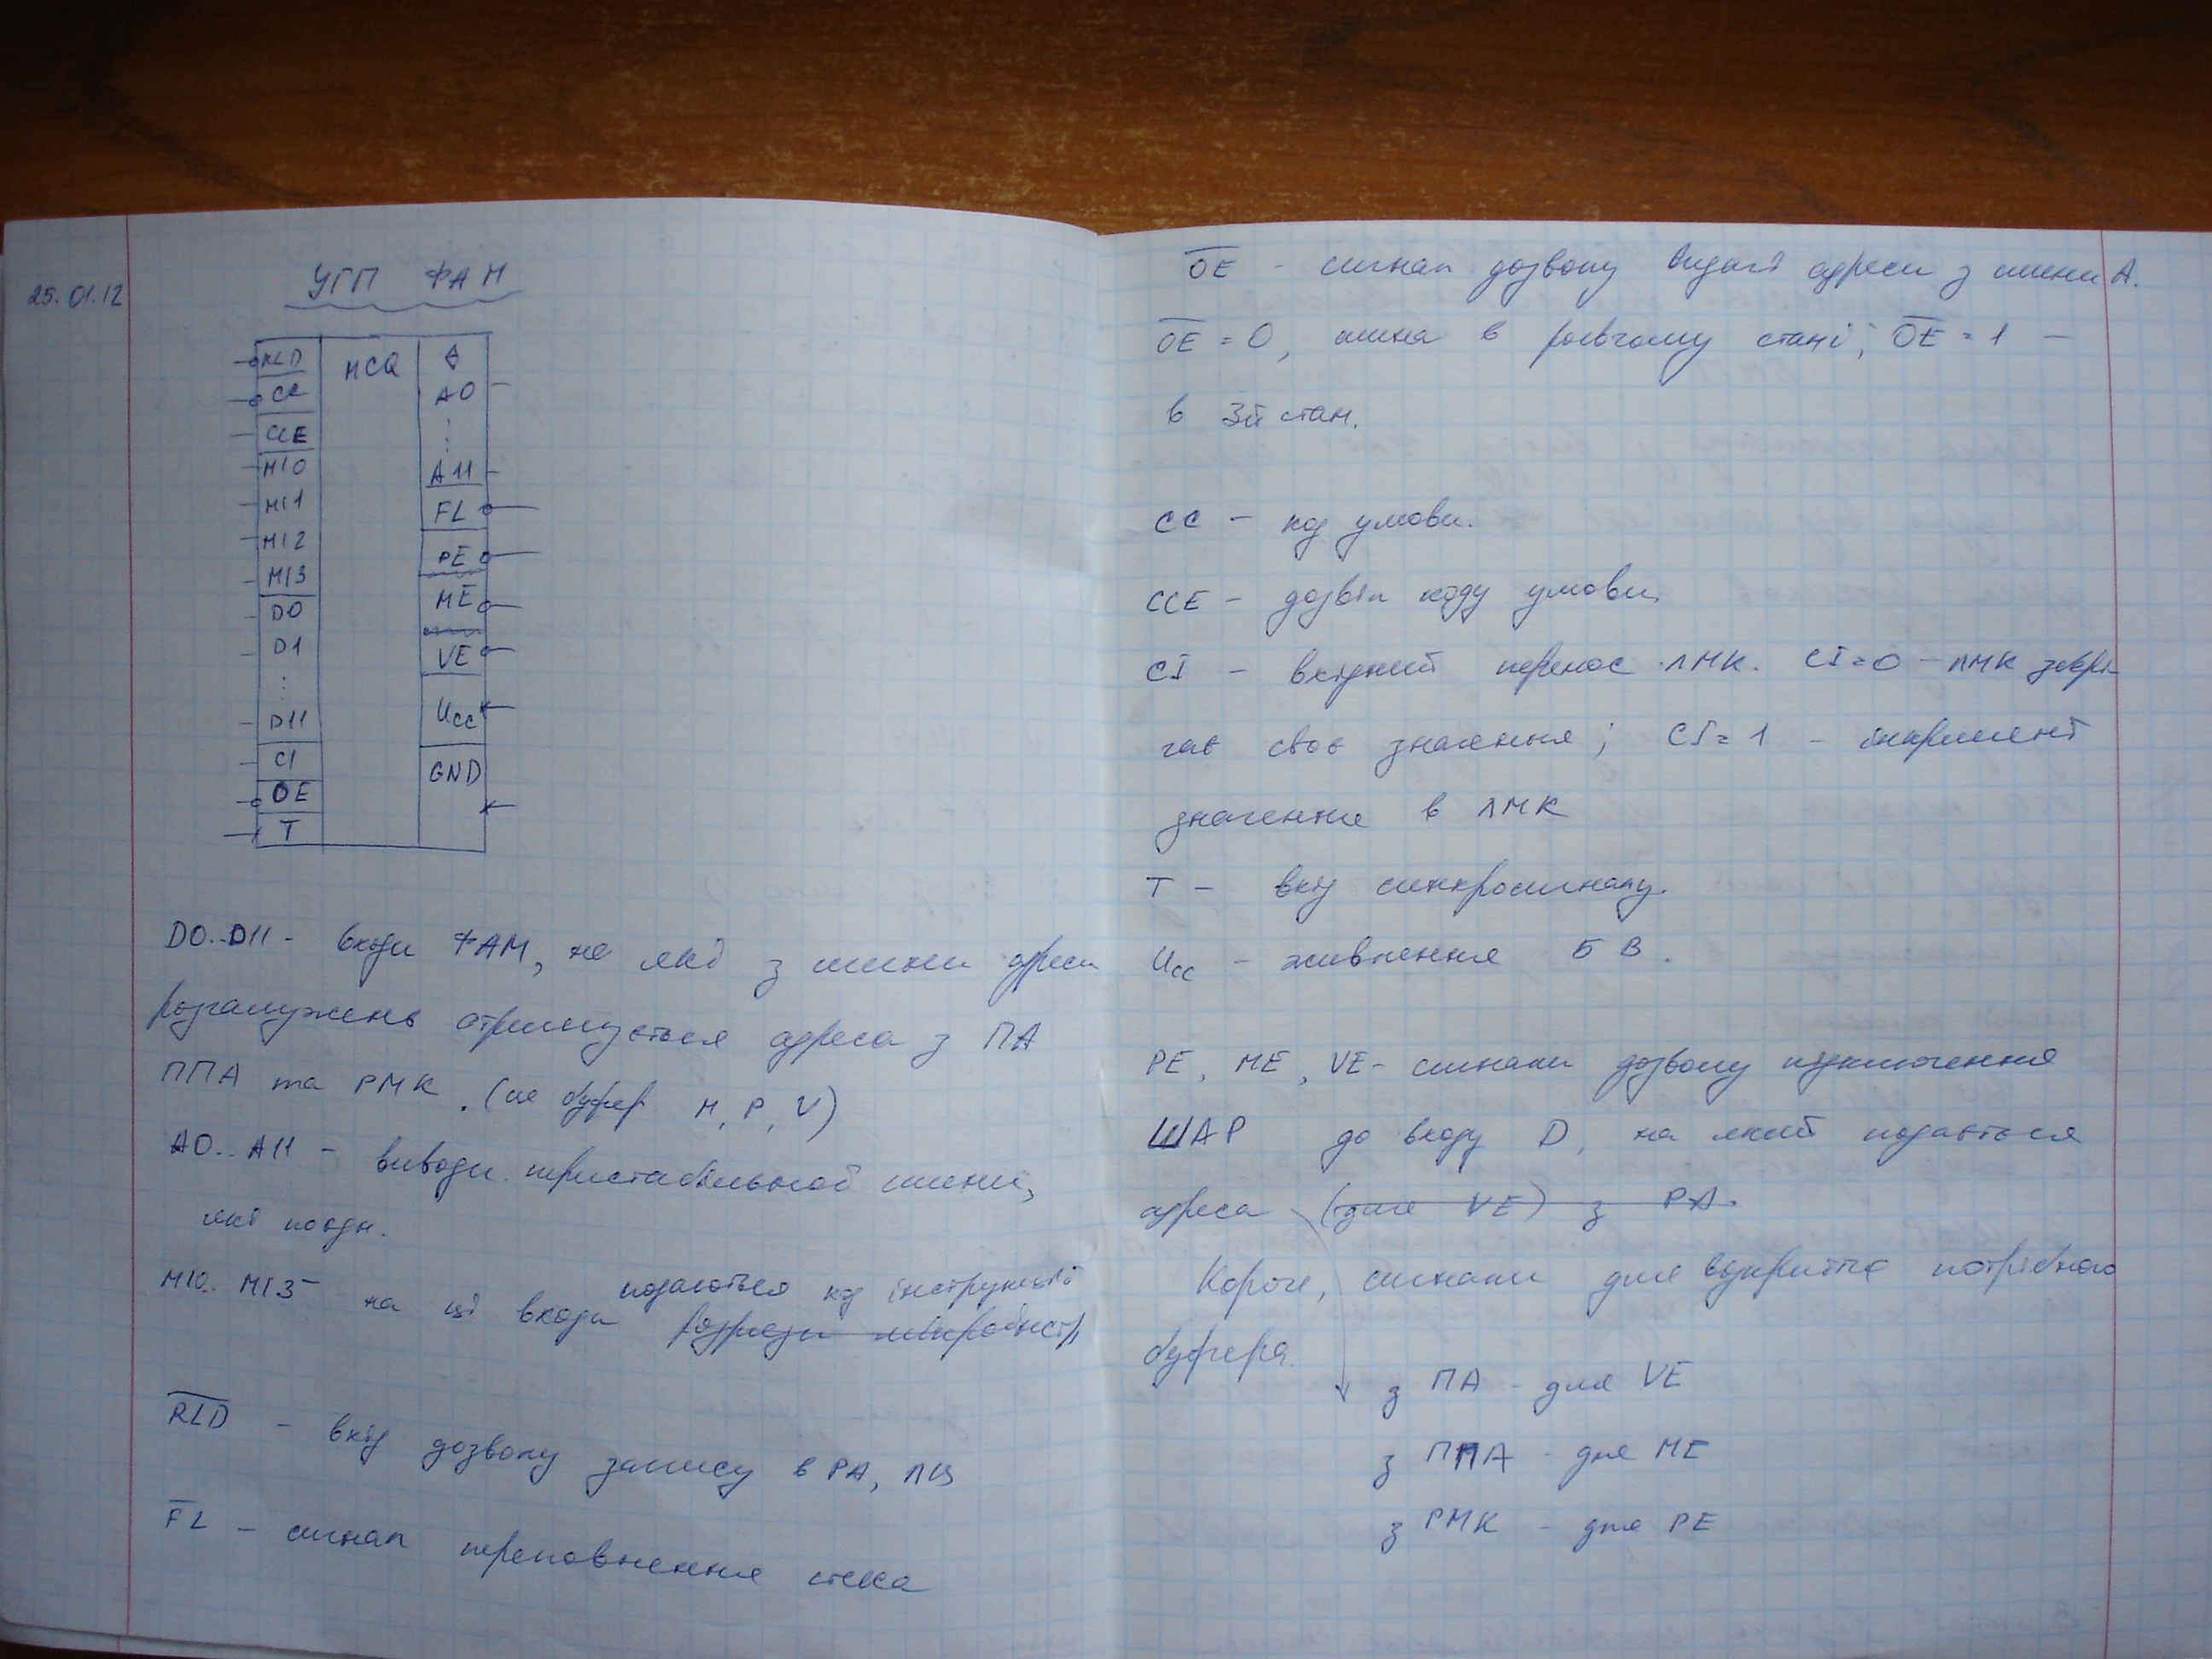 25.01.12
УГП ФАМ
RLD
CC
CCE
MI0
MI1
MI2
MI3
D0
D1
⋮
D11
CI
OE
T
MCQ
A0
⋮
A11
FL
PE
ME
VE
Ucc
GND
D0..D11 - входи ФАМ, на які з шини адреси
розгалужень отримується адреса з ПА
ППА та РМК. (це буфер M, P, V)
A0..A11 - виводи тристабільної шини,
які поєдн.
MI0..MI3 - на ці входи подаються код інструкції
розряди мікроінстр
R̅L̅D̅ - вхід дозволу запису в РА, ЛЦ
F̅L̅ - сигнал переповнення стека
O̅E̅ - сигнал дозволу видачі адреси з шини А.
O̅E̅ = 0, шина в робочому стані; O̅E̅ = 1 -
в 3й стан.
CC - код умови.
CCE - дозвіл коду умови.
CI - вхідний перенос ЛМК. CI=0 - ЛМК збері-
гає своє значення; CI=1 - інкремент
значення в ЛМК
T - вхід синхросигналу.
Ucc - живлення 5 В.
PE, ME, VE - сигнали дозволу підключення
ШАР до входу D, на який подається
адреса (для VE) з РА.
Короче, сигнали для відкриття потрібного
буфера.
з ПА - для VE
з ППА - для ME
з РМК - для PE